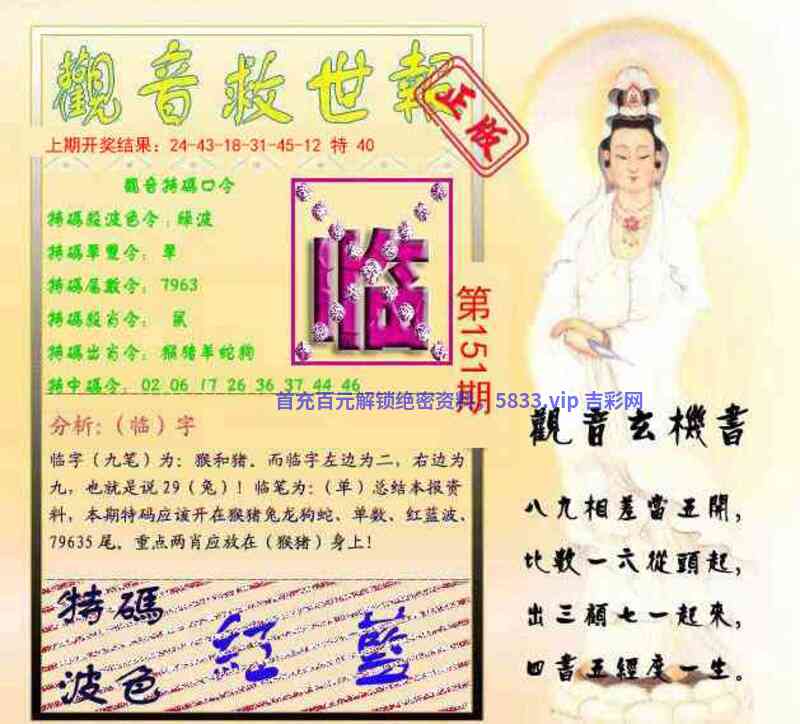 觀音救世報
正版
上期开奖结果：24-43-18-31-45-12 特 40
觀音特碼口令
特碼殺波色令：綠波
特碼單雙令： 單
特碼尾數令： 7963
特碼殺肖令： 鼠
特碼出肖令：猴猪羊蛇狗
特中碼令：02 06 17 26 36 37 44 46
临
第151期
首充百元解锁绝密资料，5833.vip 吉彩网
分析:（临）字
临字（九笔）为：猴和猪。而临字左边为二，右边为
九，也就是说29（兔）！临笔为:（单）总结本报资
料，本期特码应该开在猴猪兔龙狗蛇、单数、红蓝波、
79635 尾。重点两肖应放在（猴猪）身上！
特碼
波色
紅 藍
觀音玄機書
八九相差當五開，
比數一六從頭起，
出三顧七一起來，
四書五經度一生。